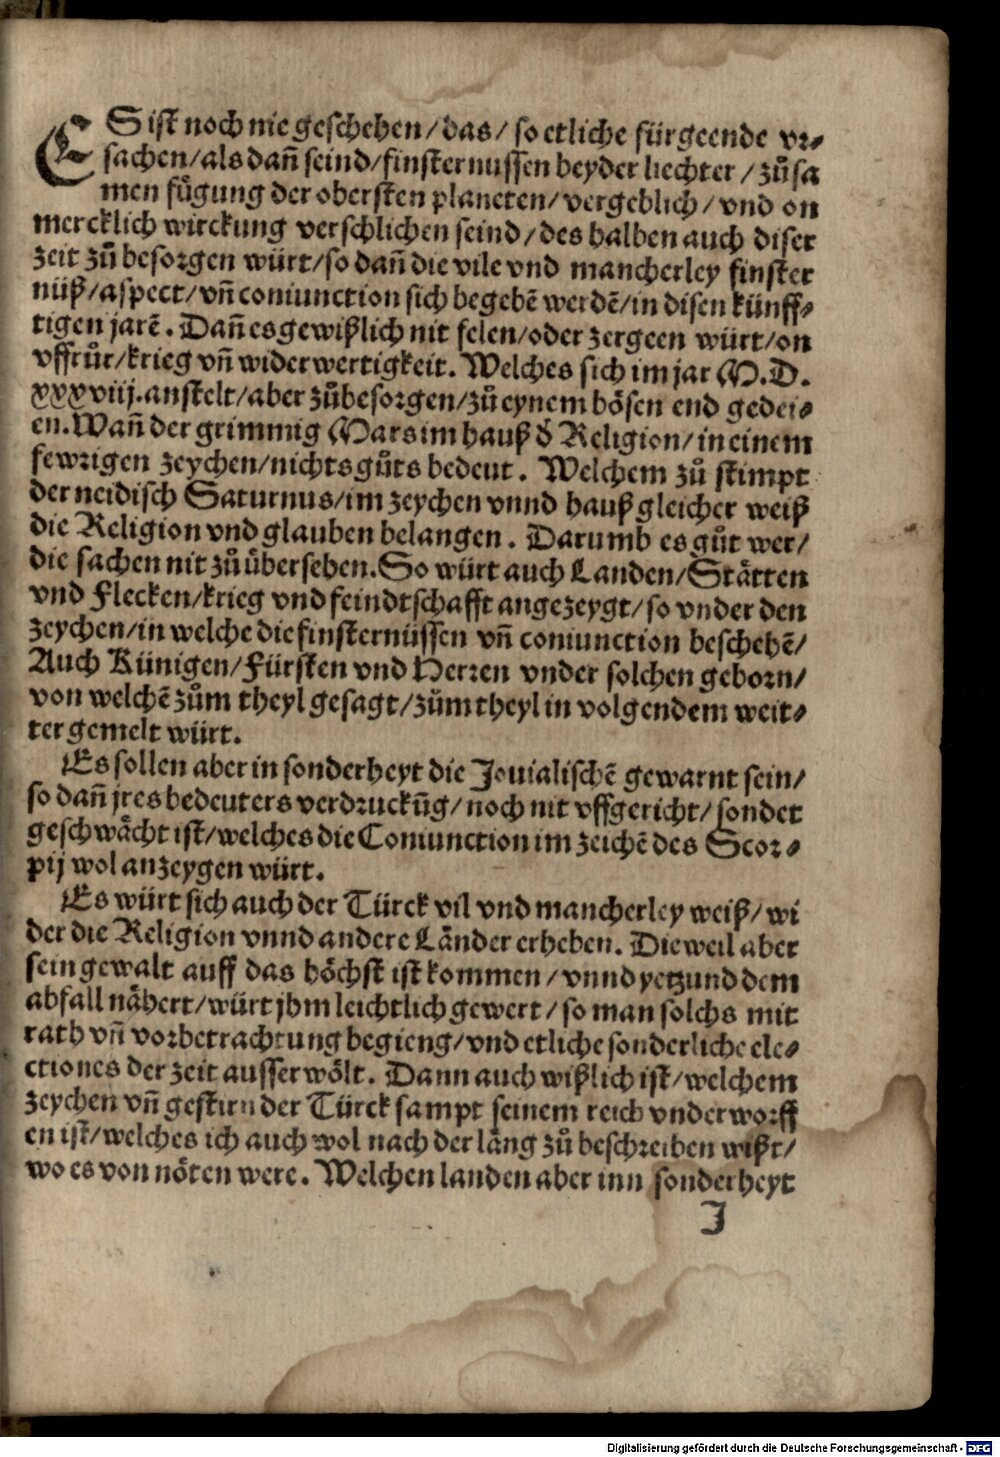 ES ist noch nie geschehen/das/so etliche fürgeende vr⸗
sachen/als dañ seind/finsternussen beyder liechter/zůsa
men fůgung der obersten planeten/vergeblich/vnd on
mercklich wirckung verschlichen seind/des halben auch diser
zeit zů besorgen würt/so dañ die vile vnd mancherley finster
nüß/aspect/vñ coniunction sich begebē werdē/in disen künff⸗
tigen jarē. Dañ es gewißlich nit felen/oder zergeen würt/on
vffrůr/krieg vñ widerwertigkeit. Welches sich im jar M.D.
xxxviij.anstelt/aber zůbesorgen/zů eynem bösen end gedei⸗
en.Wañ der grimmig Mars im hauß d̕ Religion/in einem
fewrigen zeychen/nichts gůts bedeut. Welchem zů stimpt
der neidisch Saturnus/im zeychen vnnd hauß gleicher weiß
die Religion vnd glauben belangen. Darumb es gůt wer/
die sachen nit zů übersehen.So würt auch Landen/Stätten
vnd Flecken/krieg vnd feindtschafft angezeygt/so vnder den
zeychen/in welche die finsternüssen vñ coniunction beschehē/
Auch Künigen/Fürsten vnd Herren vnder solchen geborn/
von welchē zům theyl gesagt/zům theyl in volgendem weit⸗
ter gemelt würt.
Es sollen aber in sonderheyt die Jouialischē gewarnt sein/
so dañ jres bedeuters verdruckũg/noch nit vffgericht/sonder
geschwächt ist/welches die Coniunction im zeichē des Scor⸗
pij wol anzeygen würt.
Es würt sich auch der Türck vil vnd mancherley weiß/wi
der die Religion vnnd andere Länder erheben. Die weil aber
sein gewalt auff das höchst ist kommen/vnnd yetzund dem
abfall nähert/würt jhm leichtlich gewert/so man solchs mit
rath vñ vorbetrachtung begieng/vnd etliche sonderliche ele⸗
ctiones der zeit ausserwölt. Dann auch wißlich ist/welchem
zeychen vñ gestirn der Türck sampt seinem reich vnderworff
en ist/welches ich auch wol nach der läng zů beschreiben wißt/
wo es von nöten were. Welchen landen aber inn sonderheyt
J
Digitalisierung gefördert durch die Deutsche Forschungsgemeinschaft - DFG